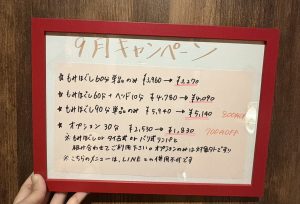 9月キャンペーン
★ もみほぐし60分 単品のみ ¥3,960→¥3,270
★ もみほぐし60分+ヘッド10分 ¥4,780→¥4,090
★ もみほぐし90分 単品のみ ¥5,940→¥5,140 800円OFF
★ オプション 30分 ¥2,530→¥1,830 700円OFF
※ もみほぐし or タイ古式 or バリ式
組み合わせてご利用下さい。オプションのみは対象外です
※ こちらのメニューは、LINEとの併用不可です